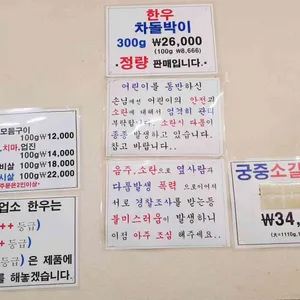 한우
차돌박이
300g ₩26,000
(100g ₩8,666)
·정량 판매입니다·
모듬구이
100g ₩12,000
치마,업진
100g ₩14,000
비살 100g ₩18,000
시살 100g ₩22,000
주문은2인이상
어린이를 동반하신
손님께선 어린이의 안전과
소란에 대해서 엄격히 관리
부탁합니다. 소란시 다툼이
종종 발생하고 있습니다.
참고 바랍니다.
음주, 소란으로 옆사람과
다툼발생 폭력으로이어져
서로 경찰조사를 받는등
불미스러움이 발생하니
이점 아주 조심 해주세요..
업소 한우는
++ 등급)
+ 등급)
등급) 은 제품에
를 해놓겠습니다.
궁중소갈
₩34,
(大=1110g,